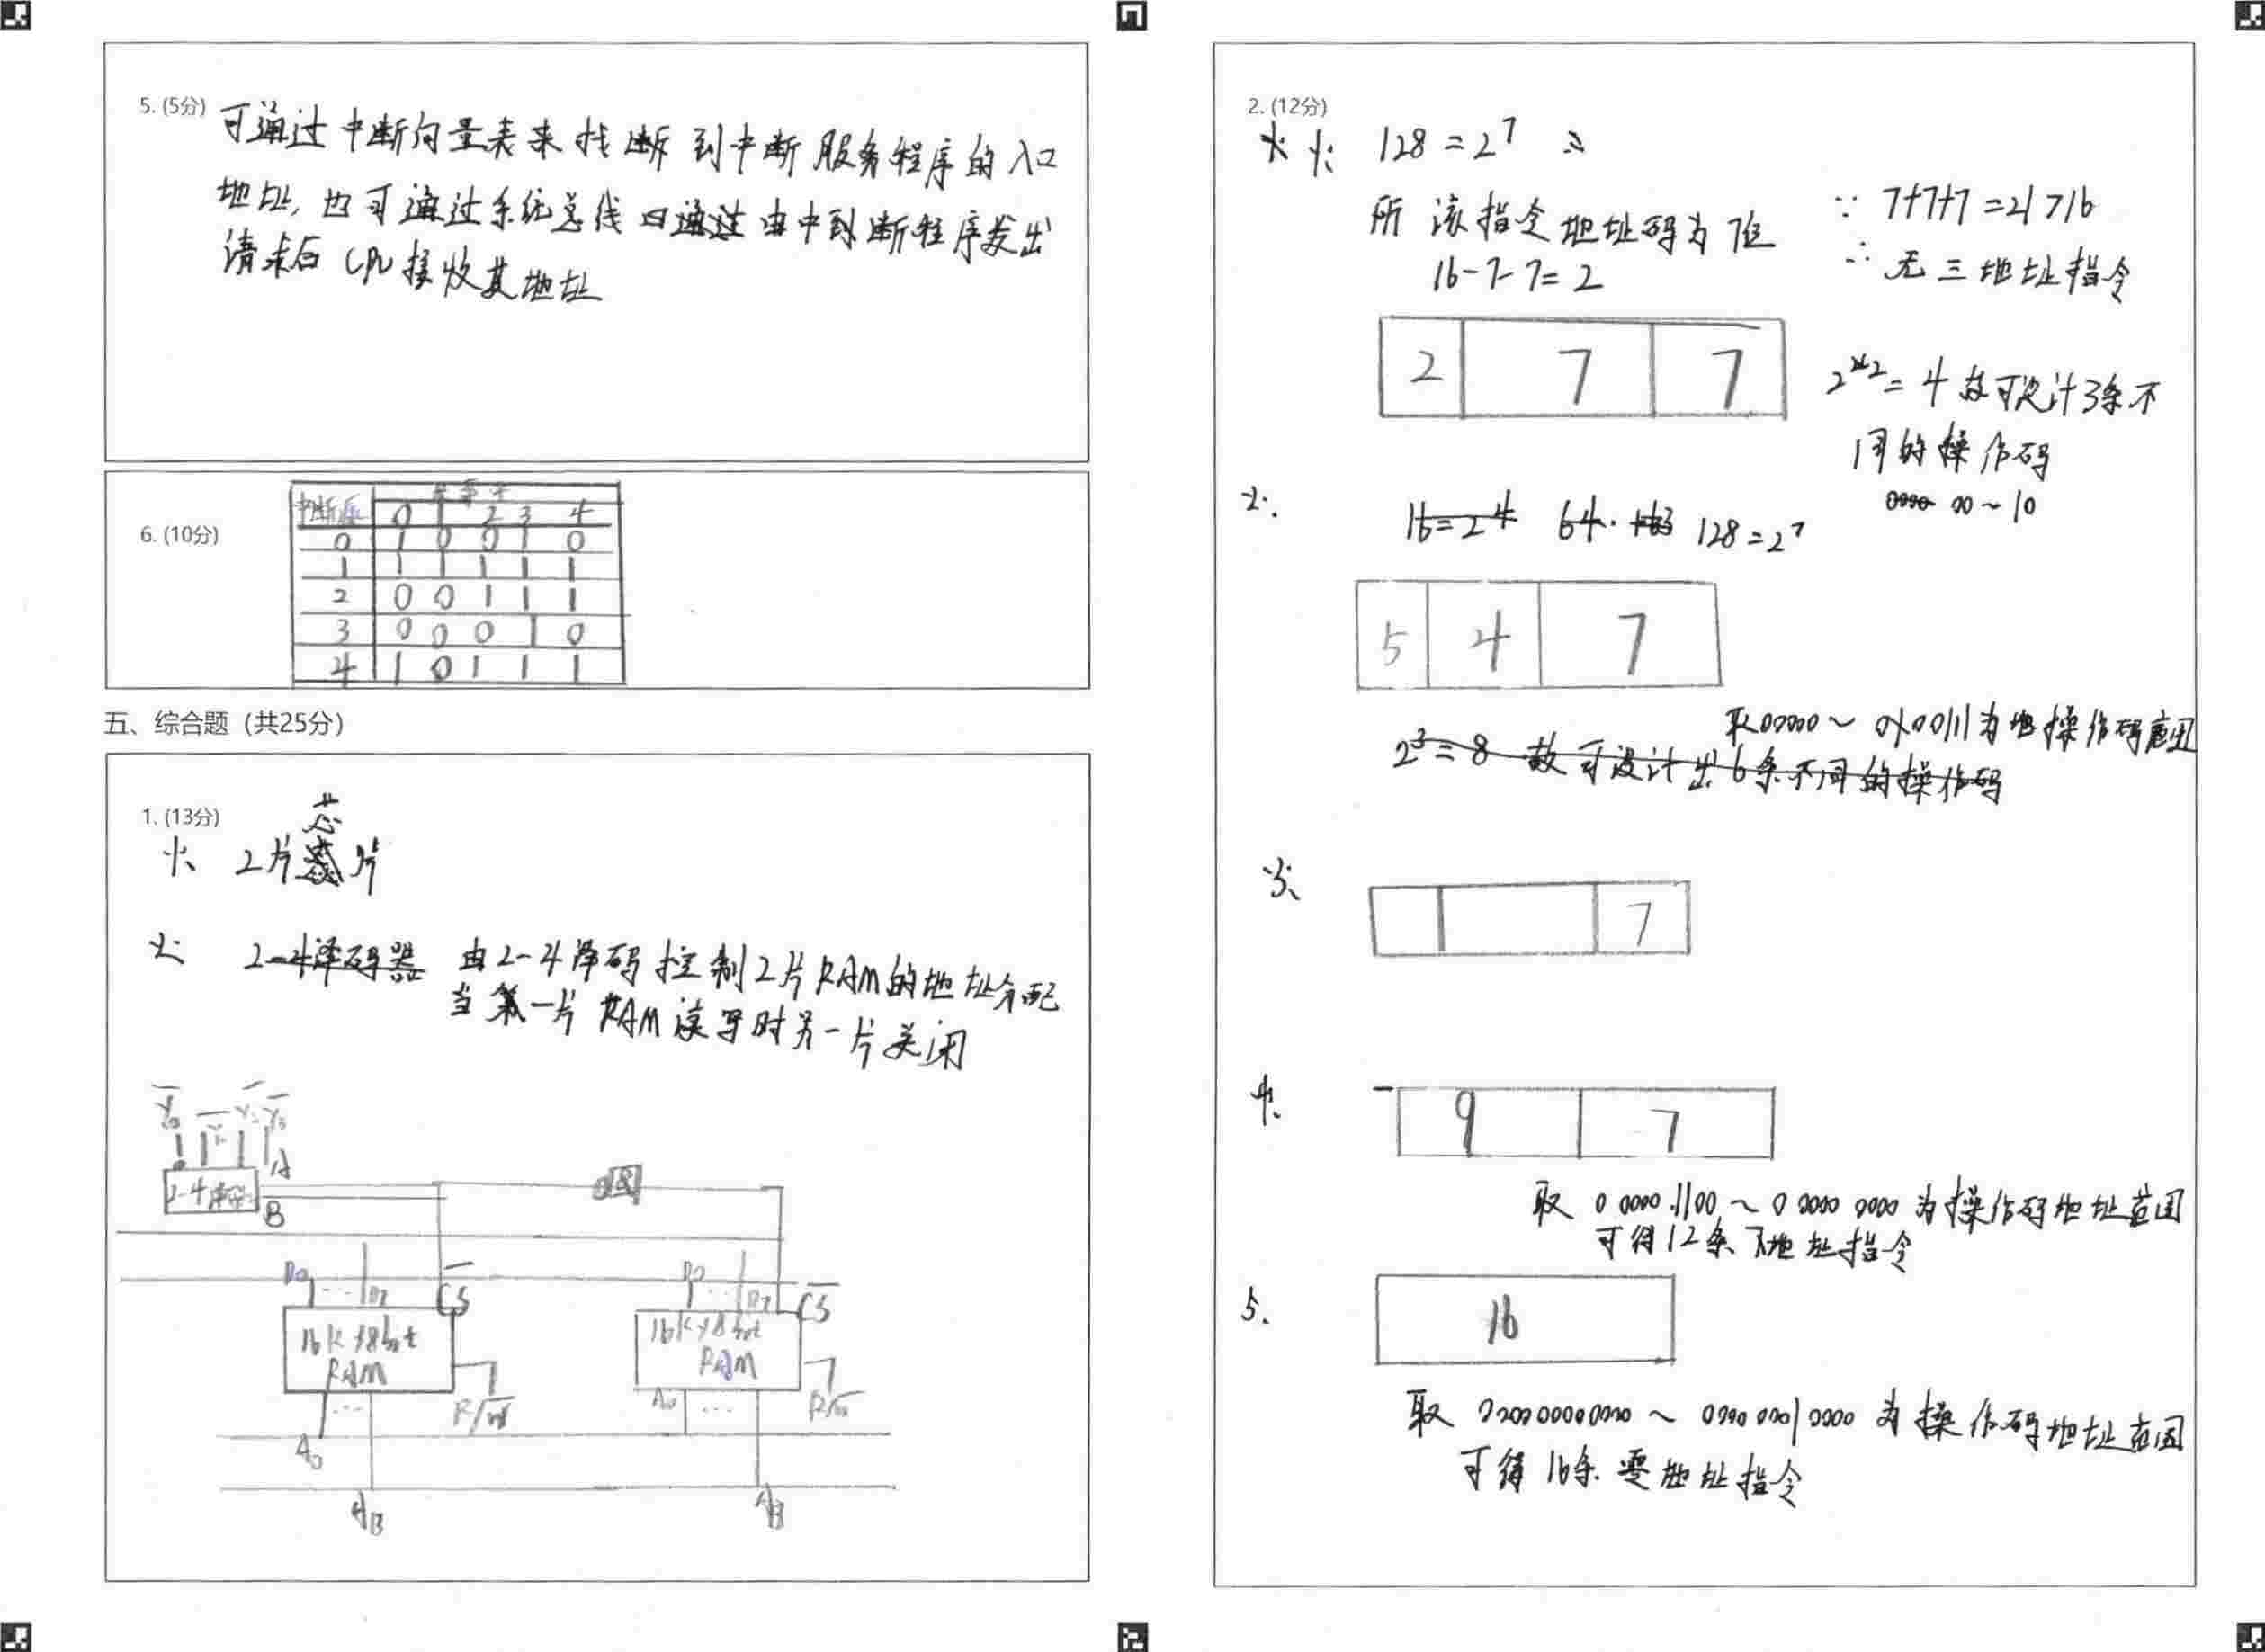 5. (5分)
可通过中断向量表来找断到中断服务程序的入口
地址,也可通过系统总线 通过由中到断程序发出
请求后CPU接收其地址
6. (10分)
中断源
0 1 2 3 4
0 1 0 0 1 0
1 1 1 1 1 1
2 0 0 1 1 1
3 0 0 0 1 0
4 1 0 1 1 1
五、综合题(共25分)
1. (13分)
1、 2片芯片
2、 2-4译码器 由2-4译码控制2片RAM的地址分配
当第一片RAM读写时另一片关闭
Y0 Y1 Y2 Y3
A
2-4译码
B
D0 ... D7 CS D0 ... D7 CS
16K×8bit 16K×8bit
RAM RAM
R/W R/W
A0 ... A0 ...
A13 A13
2. (12分)
1、 128=2^7
所 该指令地址码为7位
16-7-7=2
∵ 7+7+7=21>16
∴ 无三地址指令
2 7 7
2^2=4 故可设计3条不
同的操作码
00~10
2、 16=2^4 64. 128=2^7
5 4 7
取00000~
2^3=8 故可设计出6条不同的操作码
3、 7
4、 9 7
取 0 0000 1100 ~ 0 0000 0000 为操作码地址范围
可得12条 地址指令
5、 16
取 00000000000 ~ 0000 0001 0000 为操作码地址范围
可得16条零地址指令